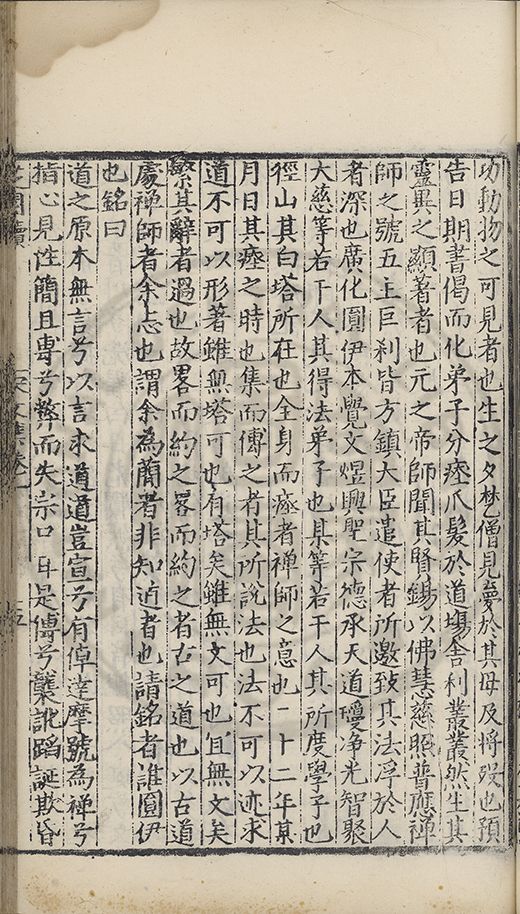 功動物之可見者也生之夕梵僧見夢於其母及將歿也預
告日期書偈而化弟子分瘞爪髮於道場舍利叢叢然生其
靈異之顯著者也元之帝師聞其賢錫以佛慧慈照普應禪
師之號五主巨剎皆方鎮大臣遣使者所邀致其法浮於人
者深也廣化圓伊本覺文煜興聖宗德承天道瓊净光智聚
大慈等若干人其得法弟子也某等若干人其所度學子也
徑山其白塔所在也全身而瘞者禪師之意也二十二年某
月日其瘞之時也集而傳之者其所說法也法不可以迹求
道不可以形著雖無塔可也有塔矣雖無文可也宜無文矣
繁其辭者過也故畧而約之畧而約之者古之道也以古道
處禪師者余志也謂余為蕳者非知近者也請銘者誰圓伊
也銘曰
道之原本無言兮以言求道道豈宣兮有倬達摩號為禪兮
指心見性簡且專兮弊而失宗口耳是傳兮襲訛蹈誕欺昏